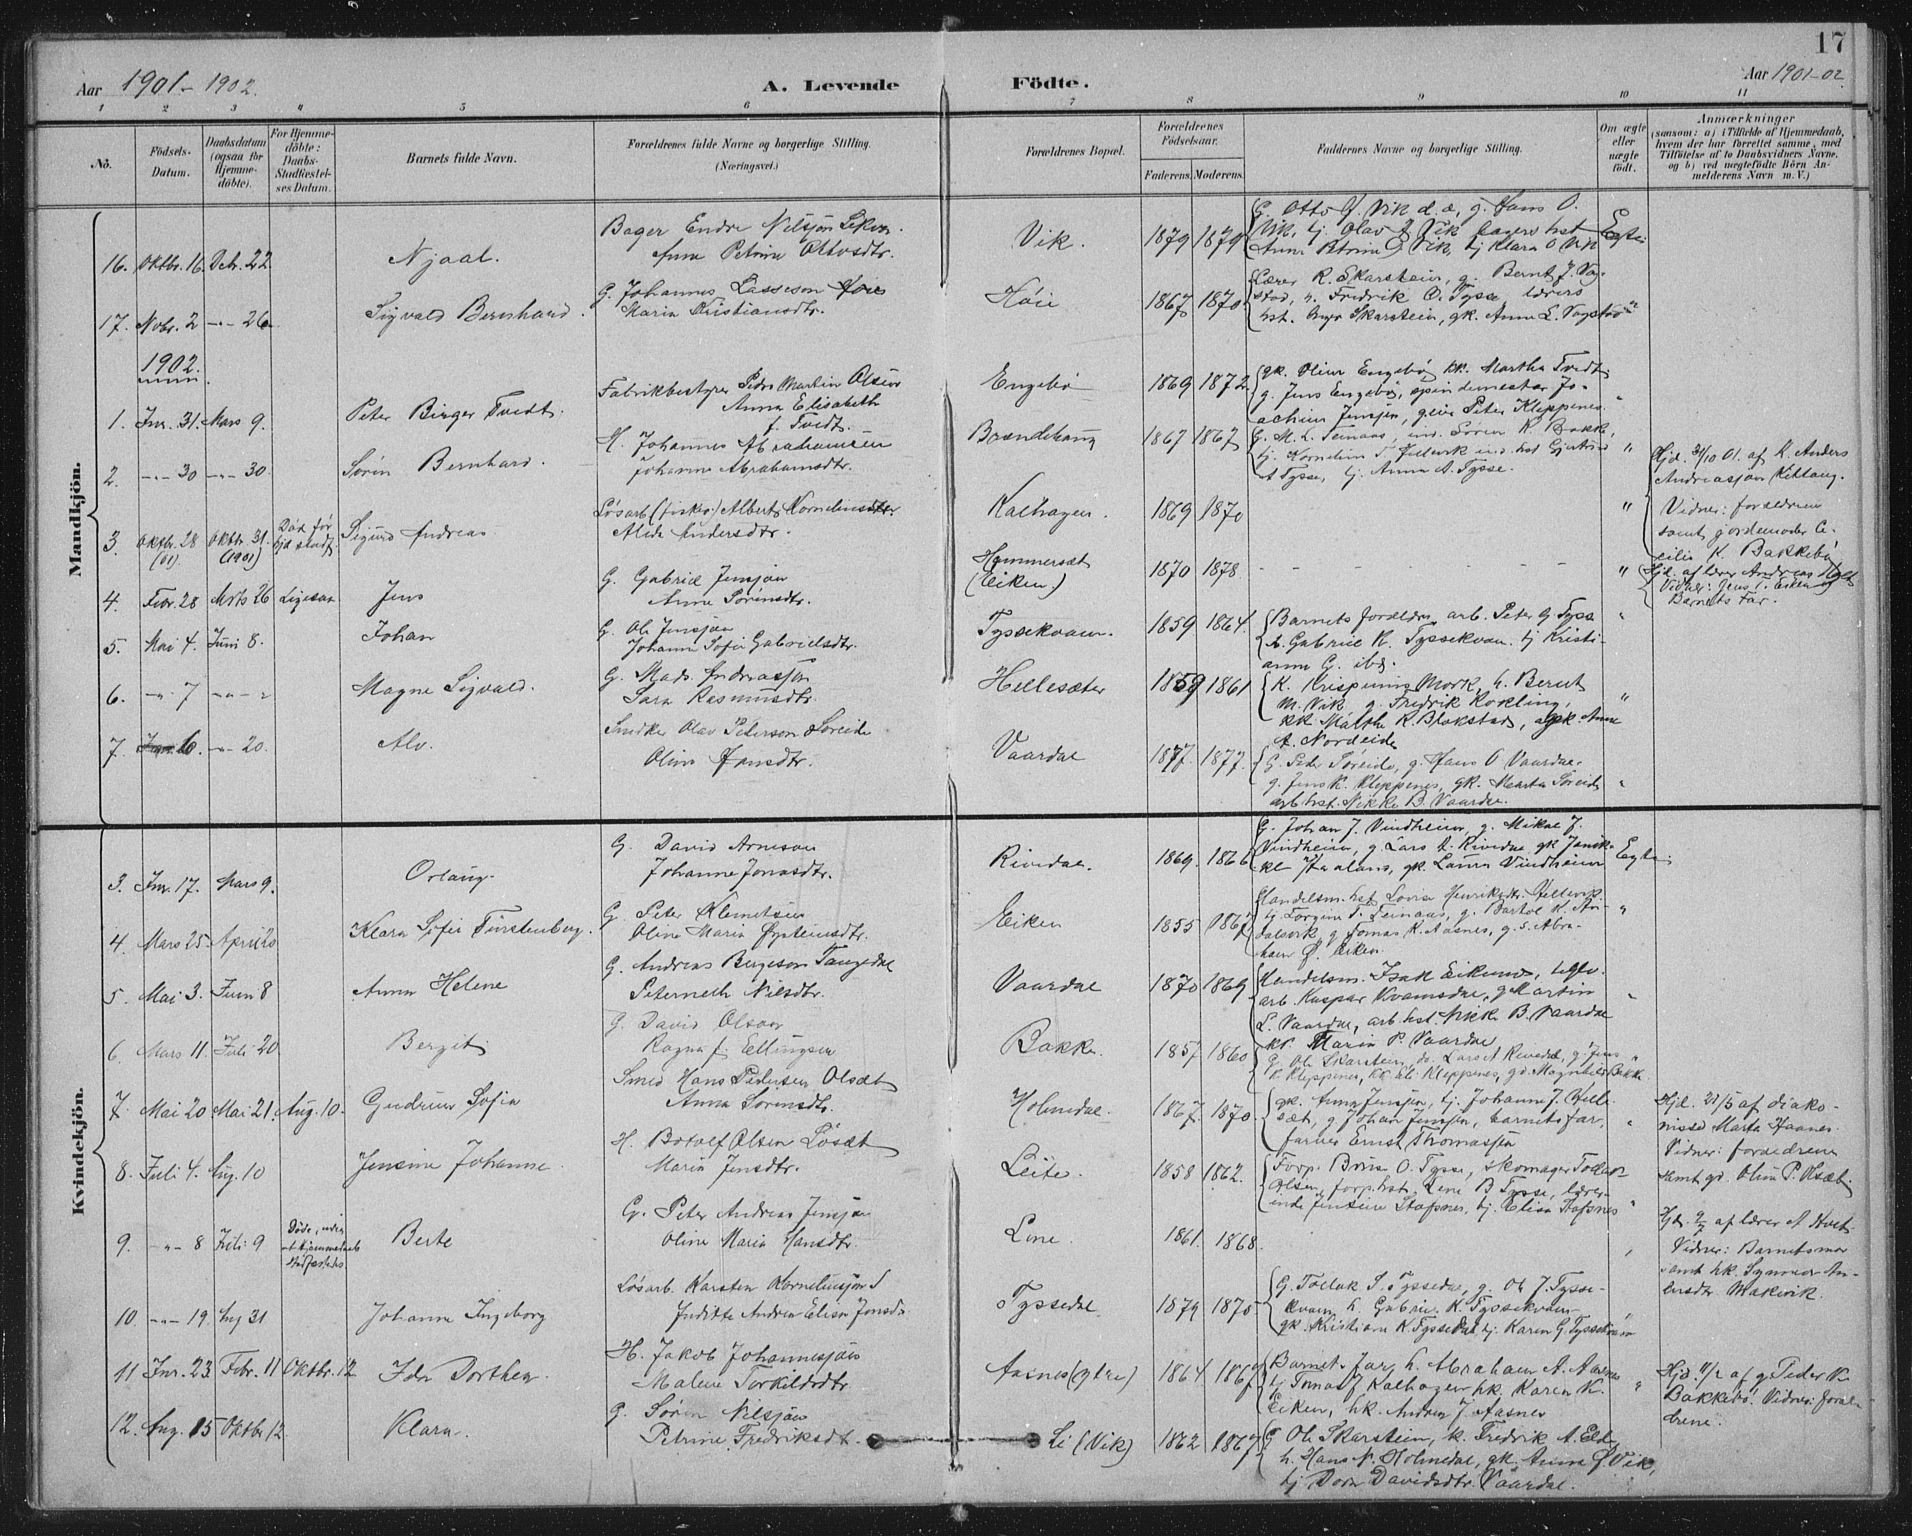 17
Aar 1901-1902. A. Levende Födte. Aar 1901-02
1 2 3 4 5 6 7 8 9 10 11
No.
Födsels-Datum.
Daabsdatum (ogsaa for Hjemme-döbte).
For Hjemme-döbte: Daabs-Stadfæstel-ses Datum.
Barnets fulde Navn.
Forældrenes fulde Navne og borgerlige Stilling. (Næringsvei.)
Forældrenes Bopæl.
Forældrenes Födselsaar.
Faderens. Moderens.
Faddernes Navne og borgerlige Stilling.
Om ægte eller uægte födt.
Anmærkninger
(saasom: a) i Tilfælde af Hjemmedaab, hvem der har forrettet samme, med Tilföielse af to Daabsvidners Navne, og b) ved uægtefödte Börn Anmelderens Navn m. V.)
Mandkjön.
16. Oktbr. 16. Dcbr. 22 Njaal. Bager Endre Nilsjøn
Anna Petrine Ottosdtr. Vik. 1879 1879 G. Otto J. Vik d.æ, g. Hans O.
Vik, tj. Olav J Vik, bagers hst
Anne Petrine O Vik, tj Klara O Vik Egte
17. Novbr. 2 -"- 26 Sigvald Bernhard. G. Johannes Lasseson Høie
Maria Kristiansdtr. Høie 1867 1870 Lærer R. Skarstein, g. Bernt J. Vag-
stad, u. Fredrik O. Tysse, lærers
hst. Inger Skarstein, gk. Anna L. Vagstad "
1902.
1. Jnr. 31. Mars 9. Peter Birger Tvedt. Fabrikbestyrer Peder Martin Olsen
Anna Elisabeth
f. Tvedt. Engebø 1869 1872 gk. Oline Engebø, kk. Martha Tvedt,
g. Jens Engebø, spindemester Jo-
achim Jensen, g. Peter Kleppenes. "
2. -"- 30 -"- 30. Søren Bernhard. H. Johannes Abrahamsen
Johanne Abrahamsdtr. Brændehaug 1867 1867 G. M. L. Teinaas, ind. Søren K. Bakke,
tj. Kornelius S. Hellevik ind. hst Gjertrud
A Tysse, tj. Anna A. Tysse. "
3. Oktbr. 28 (01) Oktbr. 31. (1901) Død før Hjd stadf. Sigurd Andreas Løsarb (fisker) Albert Korneliusson
Alida Andersdtr. Kalhagen. 1869 1870 " Hjd. 31/10 01. af K. Anders
Andreasson Kittang.
Vidner: forældrene
samt jordemoder Ce-
cilie K. Bakkebø
4. Febr. 28 Mrts 26 Ligesaa Jens G. Gabriel Jensjøn
Anne Sørensdtr. Hammersæt
(Eiken) 1870 1878. - - - - " Hjd. af lærer Andreas Hovt
Vidner: Jens I. Eiken og
Barnets Far.
5. Mai 4. Juni 8. Johan G. Ole Jensjøn
Johanne Sofie Gabrielsdtr. Tyssekvam. 1859 1864. Barnets forældre, arb. Peter G Tysse
h. Gabriel K. Tyssekvam. tj Kristi-
anne G. ibd. "
6. -"- 7 -"- " Magne Sigvald. G. Mads Andreassøn
Sara Rasmusdtr. Hellesæter 1859 1861 K. Krispinus Mork, h. Bernt
M. Vik g. Fredrik Rokling,
kk Malthe K. Blokstad, gk Anne
A. Nordeide "
7. 6. -"- 20. Alv. Smidker Olav Peterson Søreide
Oline Hansdtr. Vaardal 1877. 1877. G. Peter Søreide, g. Hans O Vaardal.
g. Jens K. Kleppenes, gk. Marta Søreide
arb.hst. Nikke B. Vaardal. "
Kvindekjön.
3. Jnr. 17. Mars 9. Orlaug. G. David Arneson
Johanne Jonasdtr. Rivedal. 1869. 1866 G. Johan J. Vindheim, g. Mikal J.
Vindheim, g Lars A. Rivedal gk
gk. Laura Vindheim Egte
4. Mars 25. April 20 Klara Sofie Fürstenberg. G. Peter Klemetsen
Oline Maria Øysteinsdtr. Eiken 1855 1862 Handelsm. hst Lovise Henriksdtr. Hellevik
tj Torgine T. Teinaas, g. Bastol K. Ar-
dalsvik, g Jonas K. Aasnes, g.s. Abra-
ham Ø. Eiken. "
5. Mai 3. Juni 8 Anna Helene G. Andreas Bergeson Tangedal
Peterneth Nilsdtr. Vaardal 1870 1869 Handelsm. Isak Eikenes,
arb. Kaspar Kvamsdal, g Martin
L. Vaardal, arb.hst. Nikke B. Vaardal
kk. Maria P. Vaardal "
6. Mars 11. Juli 20 Bergit G. David Olson
Ragna f. Ellingsen Bakke. 1857 1860 g. Ole Skarstein, do. Lars A Rivedal, g Jens
K Kleppenes, kk Eli Kleppenes, gd. Magnhild Bakke "
7. Mai 20 Mai 21. Aug. 10. Gudrun Sofia Smed Hans Pedersen Olsæt
Anna Sørensdtr. Holmedal. 1867. 1870. gk. Anna Jensjøn, tj. Johanne J. Helle-
sæt, g Johan Jensen, barnets far,
farver Ernst Thomassen " Hjd. 21/5 af diako-
nisse Marta Haanes.
Vidner: forældrene
samt gd. Olina P. Olsæt
8. Juli 4. Aug. 10 Jensine Johanne. H. Botolf Olsen Løsæt
Maria Jensdtr. Leite. 1858 1862. Forp. Brus O. Tysse, skomager Tollak
Olsen, forp.hst. Lene B Tysse, lærer-
inde Jensine Stafsnes, tj. Elisa Stafsnes "
9. -"- 8 Juli 9 Døde, uden at hjemmedaab stadfæstedes Berte G. Peter Andreas Jensjøn
Oline Maria Hansdtr. Line. 1861. 1868. " Hjd. 9/7 af lærer A Hovt
Vidner: Barnets mor
samt hk. Synnev An-
densdtr Makevik.
10. -"- 19. Aug 31 Johanne Ingeborg Løsarb. Karsten Korneliusjøn
Juditte Andrea Elisa Jonsd. Tyssedal 1879 1875 G. Tollak S. Tyssedal, g. Ole J. Tysse-
kvam, h. Gabriel K. Tyssekvam
gk. Kristiane K Tyssedal tj. Karen G. Tyssekvam "
11 Jnr. 23. Febr. 11 Oktbr. 12 Ida Dorthea. H. Jakob Johannesjøn
Malene Torkildsdtr. Aasnes (ytre) 1864. 1867 Barnets far, h. Abraham A. Aasnes
tj Jonas J Kalhagen hk. Karen K.
Eiken, hk. Andrea J. Aasnes " Hjd. 11/2 af g Peder K.
Bakkebø. Vidner: foræl-
drene.
12. Aug. 15 Oktbr 12 Klara. G. Søren Nilsjøn
Petrine Fredriksdtr. Li (Vik) 1862 1867 G Ole Skarstein, k. Fredrik A. Elde
h. Hans N. Holmedal, gk. Anna Ø Vik,
tj Dora Davidsdtr. Vaardal.